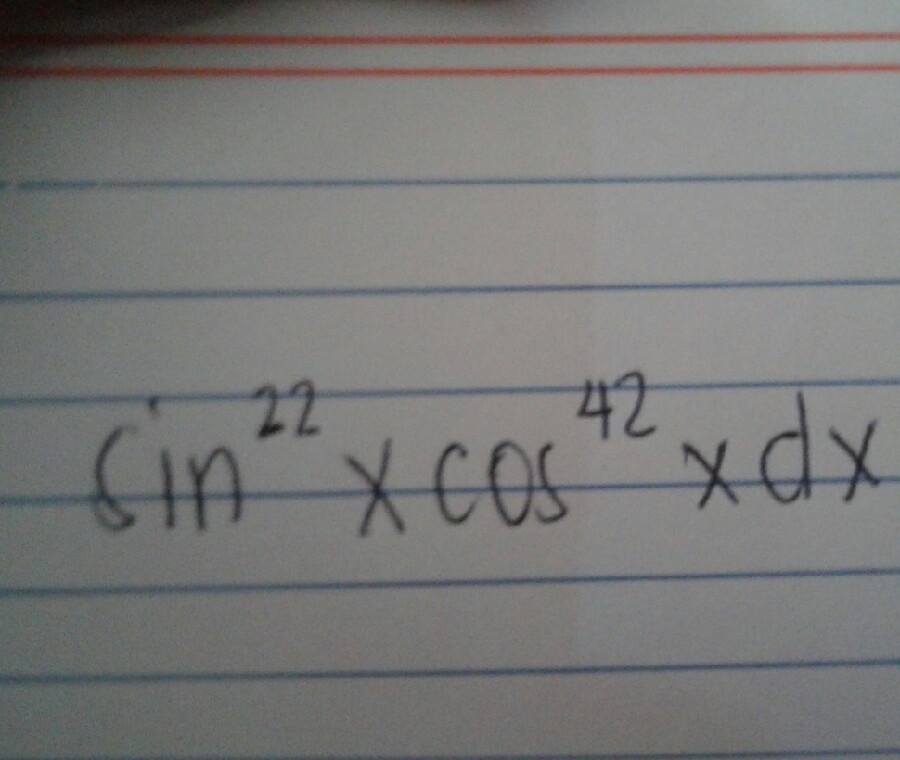 sin²² x cos⁴² x dx